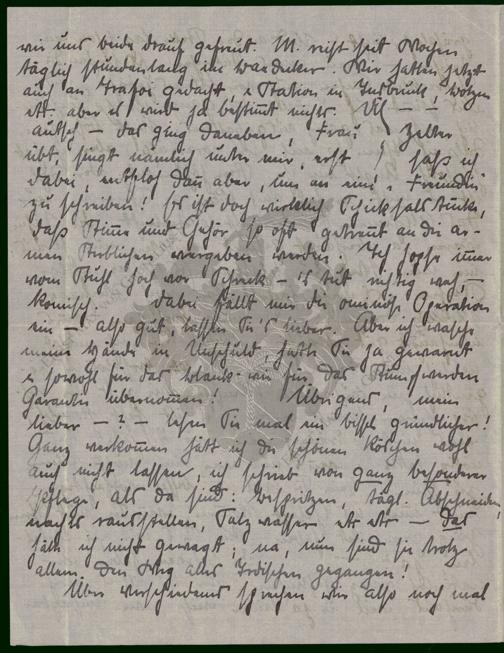 wir uns beide drauf gefreut. M. reist seit Wochen
täglich stundenlang im Baedeker. Wir hatten jetzt
auch an Trafoi gedacht, Station in Innsbruck, Bozen
etc. aber es wird ja bestimmt nichts.
autsch – das ging daneben, Frau Zelter
übt, singt nämlich unter mir, erst saß ich
dabei, entfloh dann aber, um an eine Freundin
zu schreiben! Es ist doch wirklich Schicksalstücke,
daß Stimme und Gehör so oft getrennt an die ar-
men Sterblichen vergeben werden. Ich hopse immer
vom Stuhl hoch vor Schreck – 's tut richtig weh,
komisch. Dabei fällt mir die ominöse Operation
ein – also gut, lassen Sie's lieber. Aber ich wasche
meine Hände in Unschuld, hatte Sie ja gewarnt
sowohl für das blank- wie für das Stumpfwerden
Garantie übernommen! Übrigens, mein
lieber – ? – lesen Sie mal ein bissl gründlicher!
Ganz verkommen hätt ich die schönen Röschen wohl
auch nicht lassen, ich schrieb von ganz besonderer
Pflege, als da sind: bespritzen, tägl. Abschneiden,
nachts rausstellen, Salzwasser etc etc – das
hätt ich nicht gewagt; na, nun sind sie trotz
allem den Weg alles Irdischen gegangen!
Über Verschiedenes sprechen wir also noch mal